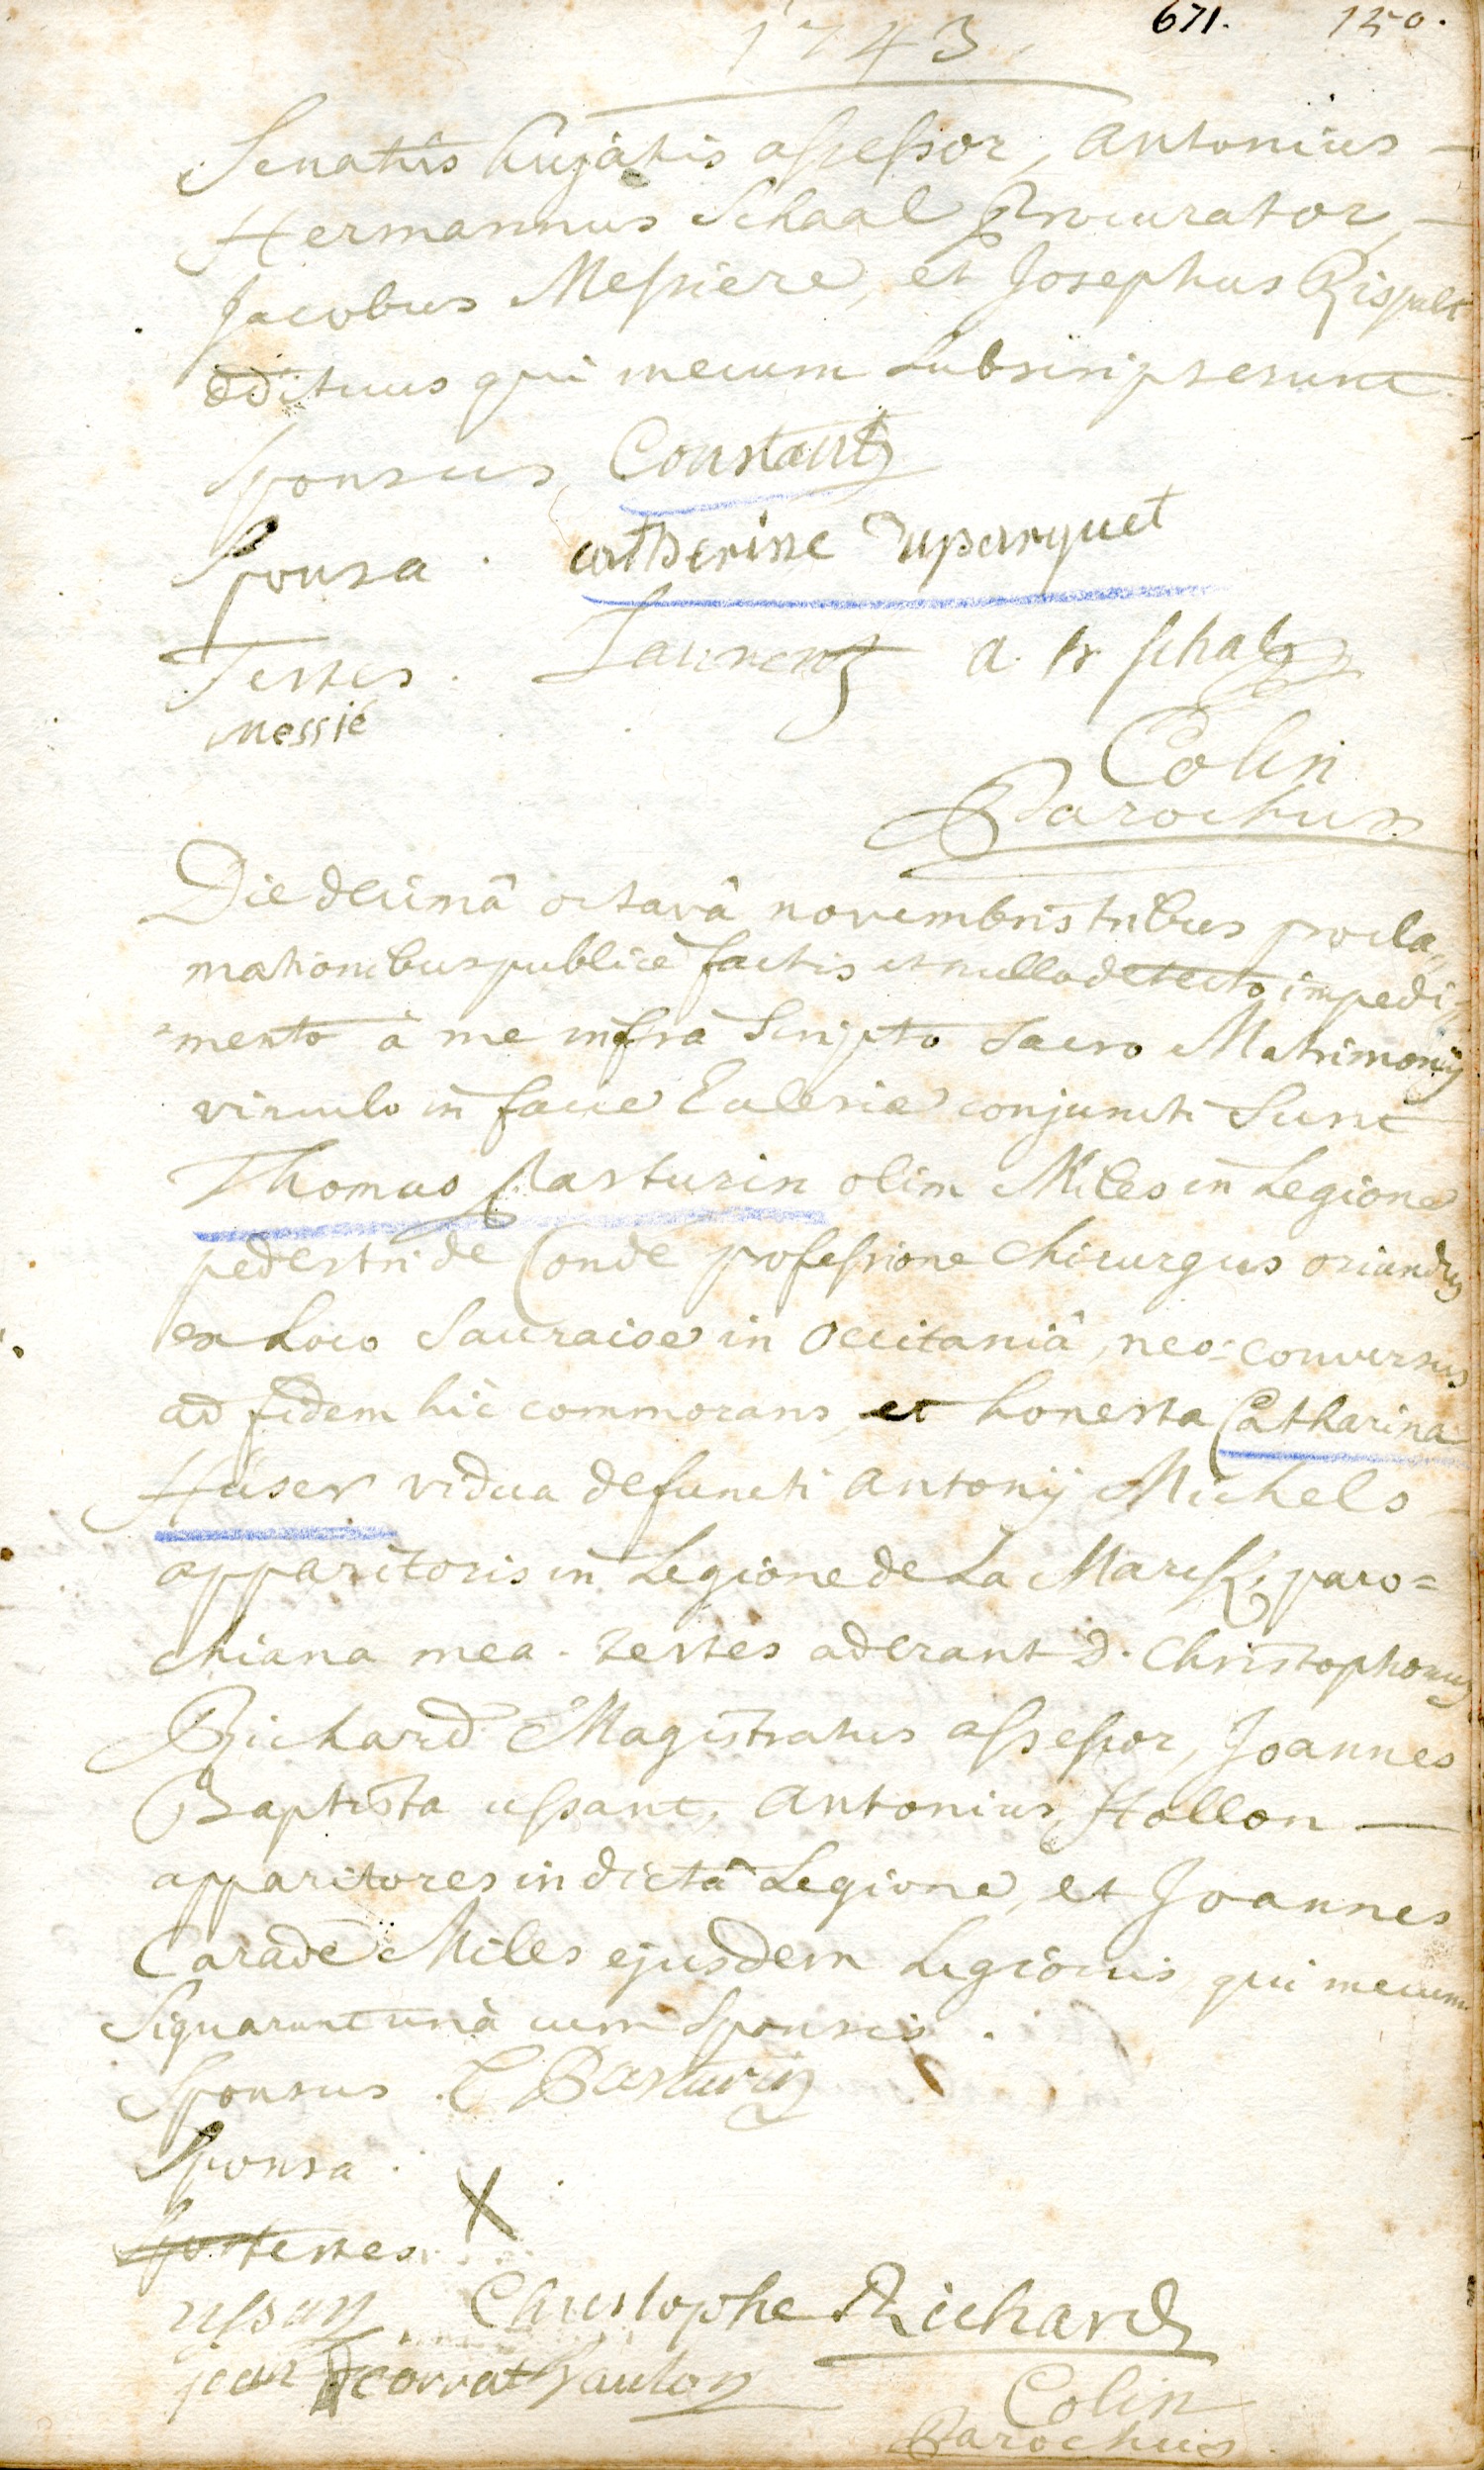 671. 150.
1743.
Senatûs hujatis assessor, antonius
Hermannus Schaal Procurator,
Jacobus Messiere, et Josephus Rispalt
ædituus qui mecum subscripserunt.
Sponsus Constant
Sponsa. catherine duparquet
Testes. Laurent a h schal
messié
Colin
Parochus
Die decimâ octavâ novembris tribus procla„
mationibus publicè factis et nullo detecto impedi„
„mento à me infrà Scripto Sacro Matrimonij
vinculo in facie Ecclesiæ conjuncti Sunt
Thomas Basturin olim Miles in Legione
pedestri de Condé professione chirurgus oriundus
ex Loco Sauraise in occitaniâ, neo=conversus
ad fidem hic commorans, et honesta Catharina
Haser vidua defuncti antonij Michels
apparitoris in Legione de La Marck, paro=
chiana mea. testes aderant D. Christophorus
Richard Magistratus assessor, Joannes
Baptista ussant, antonius Hollon
apparitores in dictâ Legione, et Joannes
Caradé Miles ejusdem Legionis, qui mecum
Signarunt unà cum Sponsis.
Sponsus. Basturin
Sponsa. X
testes.
ussan Christophe Richard
jean
Colin
Parochus